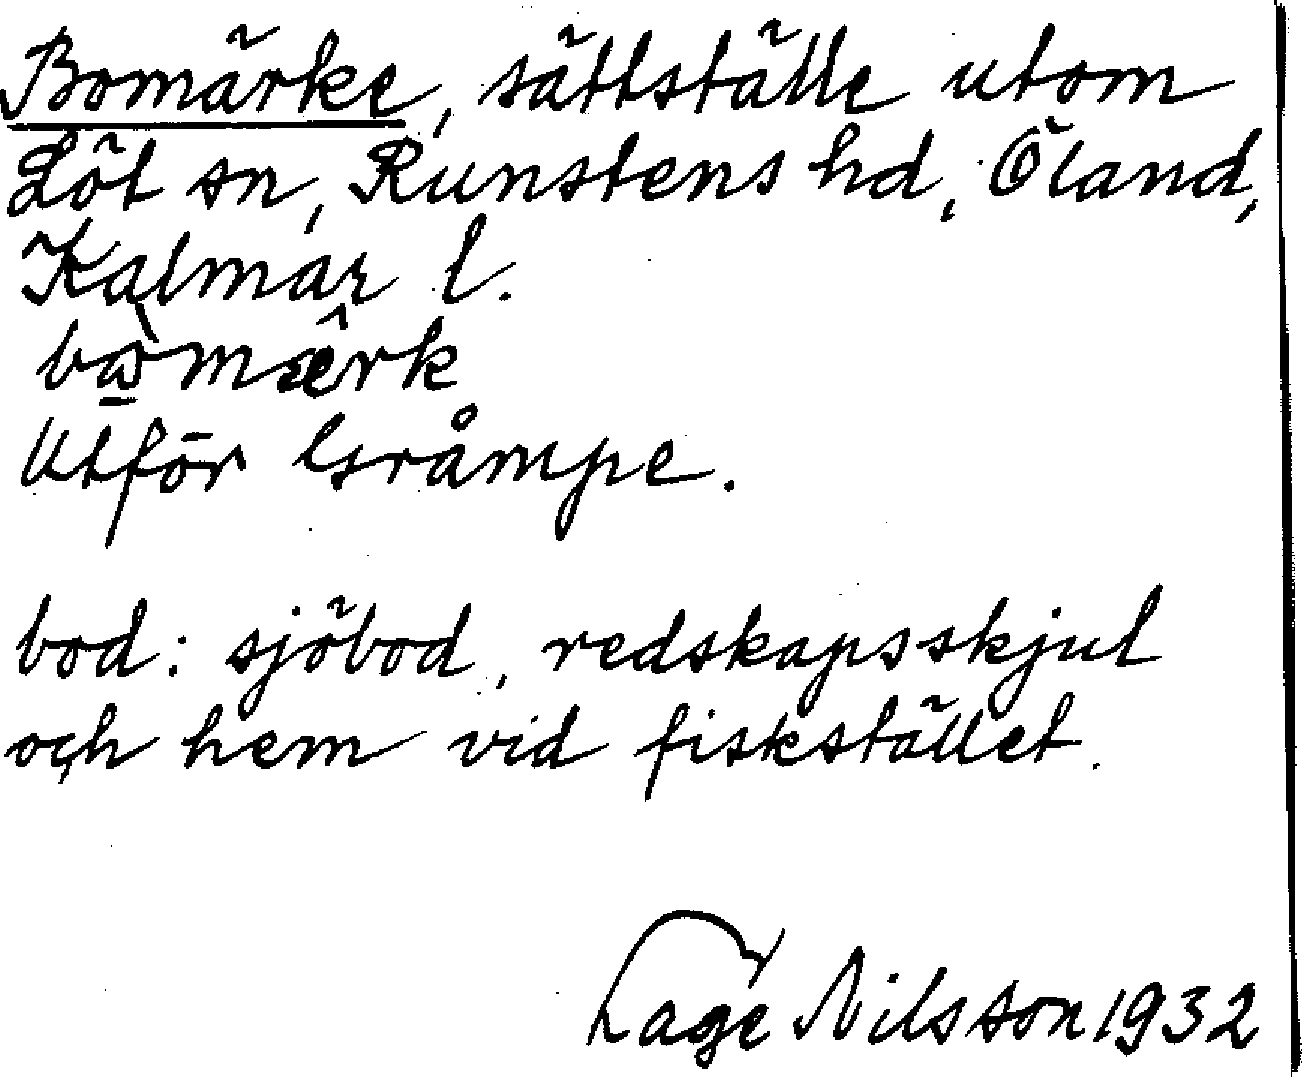 Bomärke, sättställe utom
Löt sn, Runstens hd, Öland,
Kalmar l.
Utför Gråmpe.
bod: sjöbod, redskapsskjul
och hem vid fiskstället.
Lage Nilsson 1932